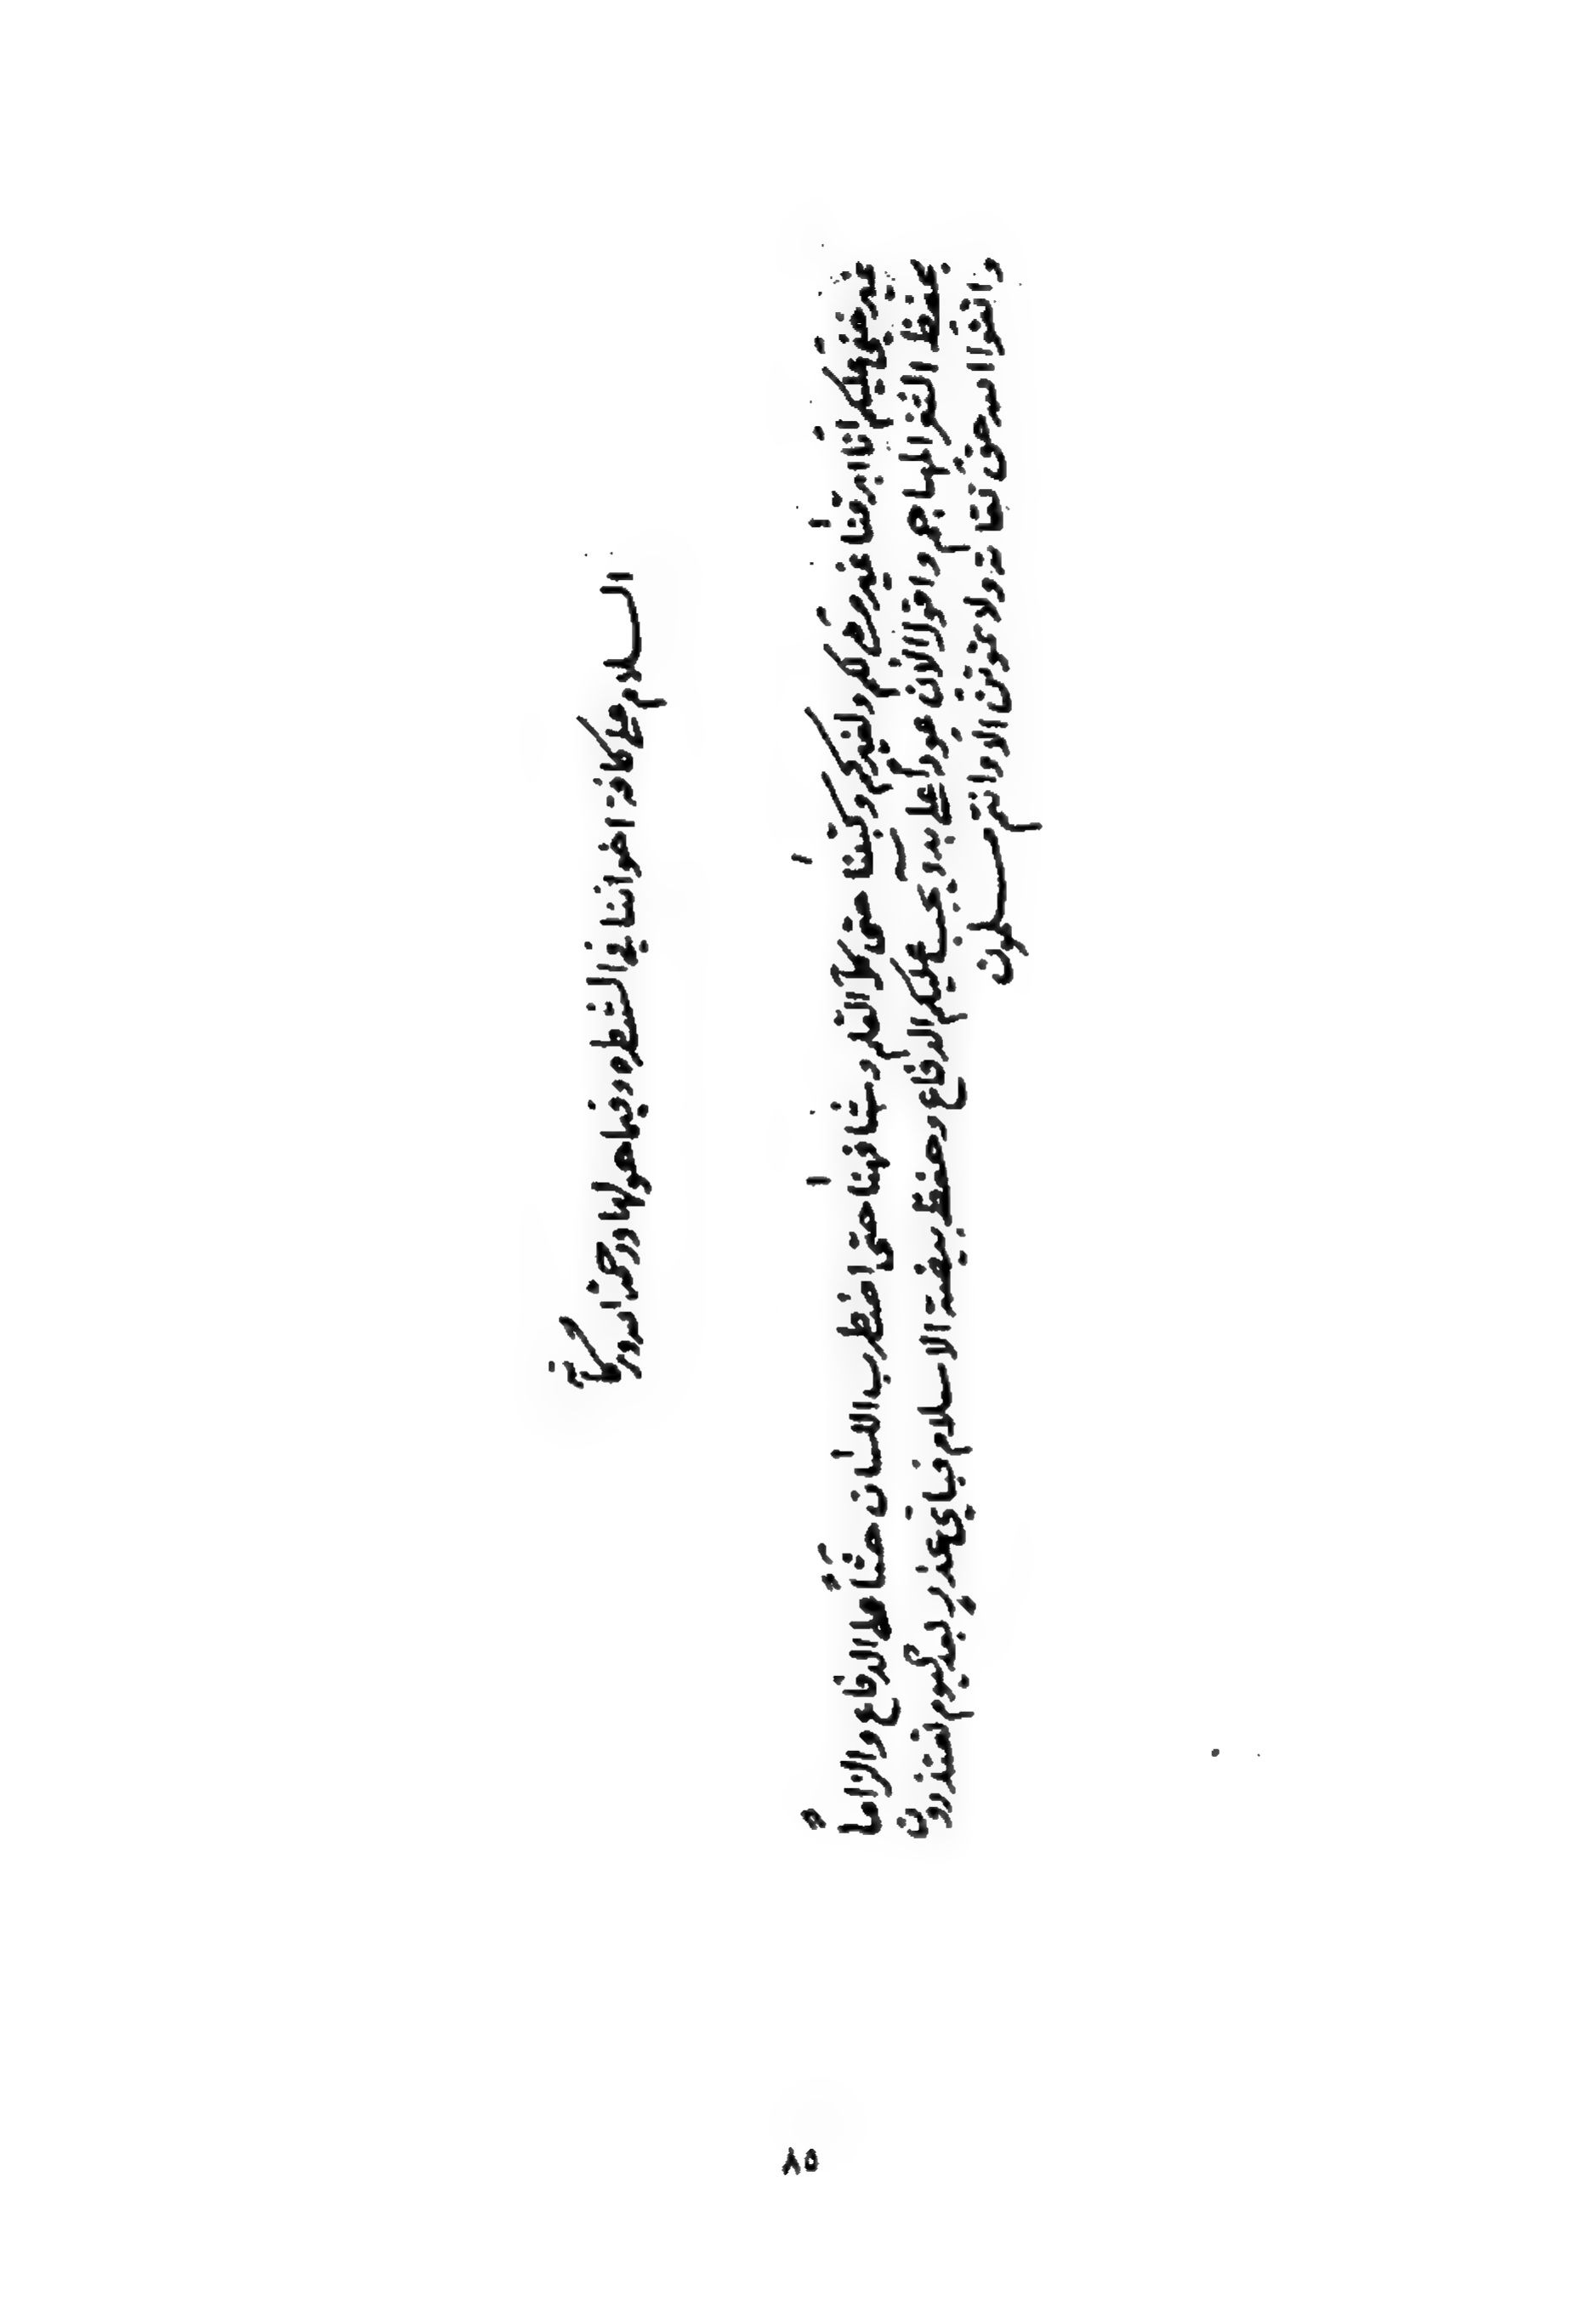 السلام على كافة اخواننا في الشطره وفيما حولها ورحمة الله وبركاته
غير خفي عليكم اننا أبرقنا غير مرة لكم ولغيركم وكتبنا حتى كلّ القلم وشافهنا حتى اضطرب اللسان حثاً على الدفاع والزاماً
بحفظ الثغر المهاجم واقول الآن عوداً على بدء يجب عليكم الدفاع وحفظ بيضة الاسلام فبأي عذر بعد اليوم تعتذرون
واتقوا الله حق تقاته ولا تموتن الا وانتم مسلمون
٨٥